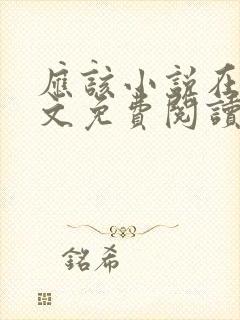 應該小說在
文免費閱讀
銘希